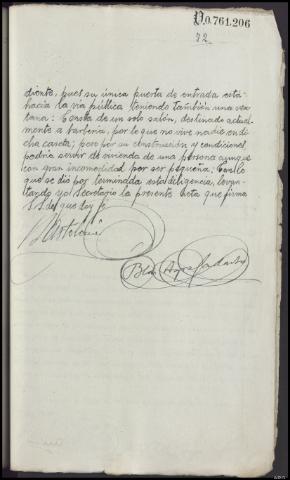 N0.761.206
72
diente, pues su única puerta de entrada está
hacia la vía pública teniendo también una ven-
tana: Consta de un solo salón, destinado actual-
mente a barbería, por lo que no vive nadie en di-
cha caseta; pero por su construcción y condiciones
podría servir de vivienda de una persona aunque
con gran incomodidad por ser pequeña; Con lo
que se dio por terminada esta diligencia, levan-
tando yo el Secretario la presente Acta que firma
S.S. de que doy fe